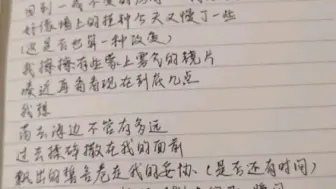 好像墙上的挂钟今天又慢了一些
(这是否也算一种改变)
我擦擦有些蒙上雾气的镜片
凑近再看看现在到底几点
我想
南去海边不管有多远
过去揉碎撒在我的面前
飘出的警告危在我的妥协、(是否还有时间)